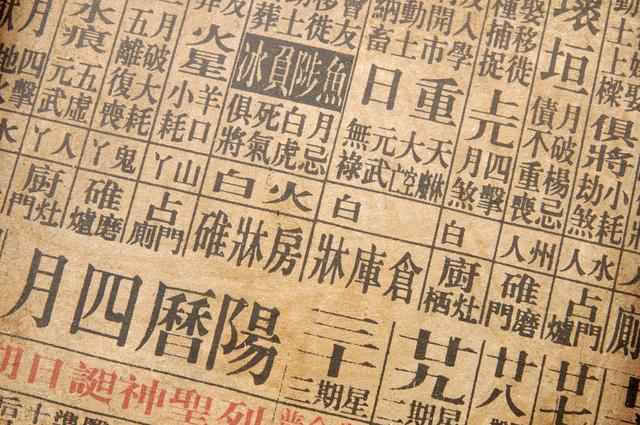 壞垣
月破楊忌
債不重喪
俱將
小耗
劫煞
娶移徙
種捕捉
上元
四擊
月煞
人學
開市
動土
納畜
重日
天
大空
元武
無祿
友
移徙
土
葬
魚陟負冰
月忌
白虎
死氣
俱將
火星
羊口
小耗
月破
大耗
五離
復喪
水痕
五虛
元武
月
四擊
水人
州人
白
白
火白
山丫
鬼丫
人丫
水
廁
占門爐
碓磨門
廚灶栖
倉庫牀
房牀碓
占門廁
碓磨爐
廚灶門
廿七
廿八
廿九
星期二
三十
星期三
陽曆四月
列聖神誕日期